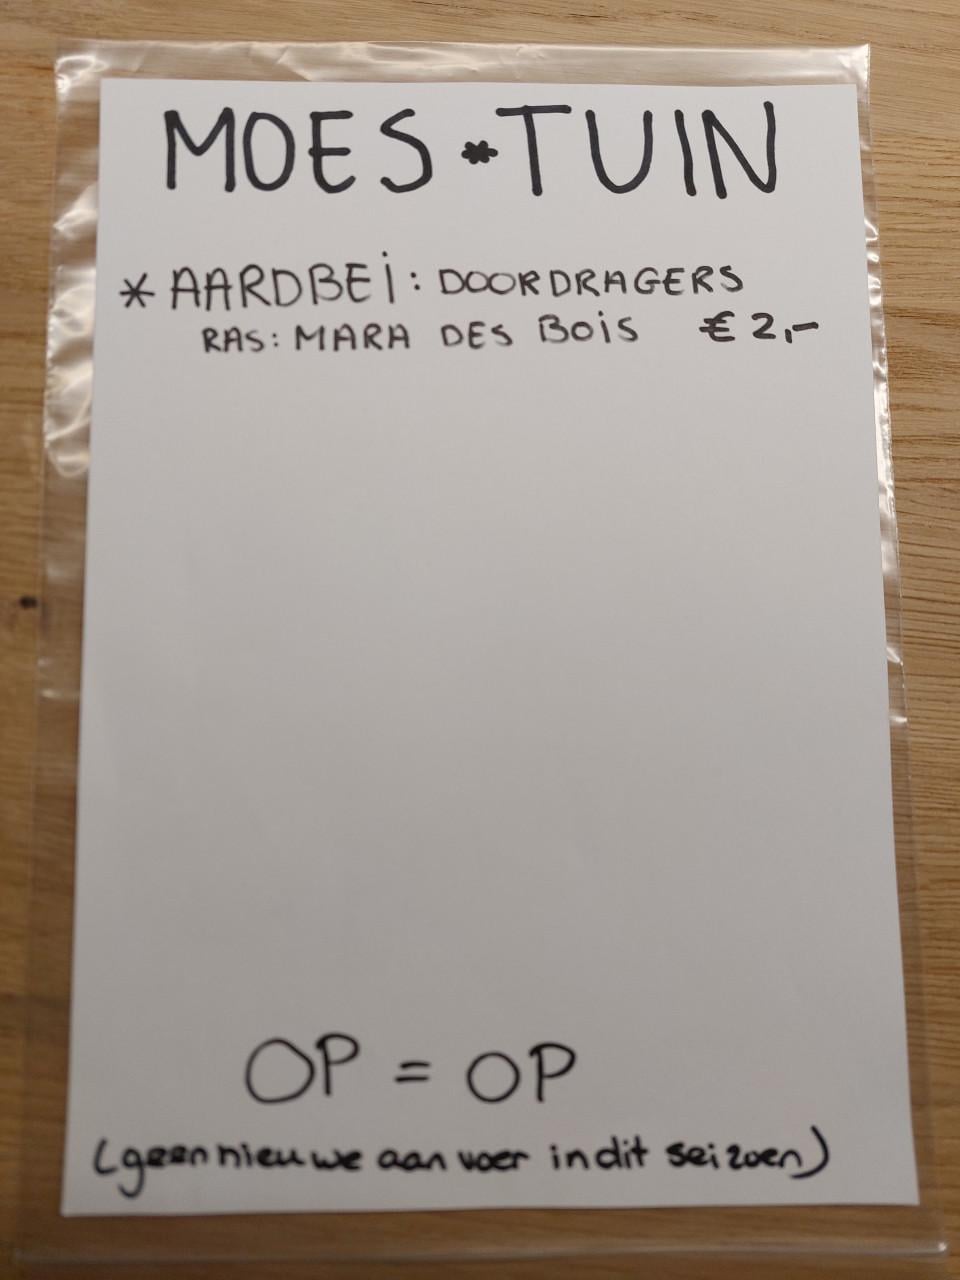 MOES * TUIN
* AARDBEI: DOORDRAGERS
RAS: MARA DES BOIS € 2,-
OP = OP
(geen nieuwe aanvoer in dit seizoen)